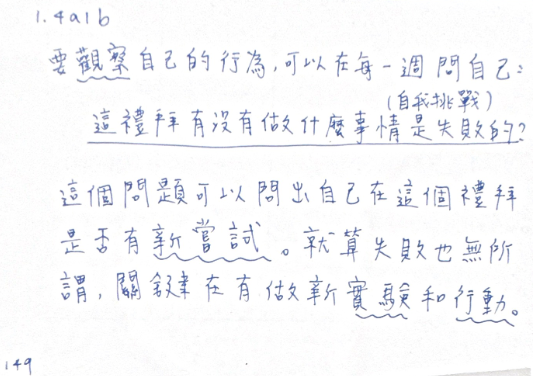 1.4a1b
要觀察自己的行為,可以在每一週問自己:
(自我挑戰)
這禮拜有沒有做什麼事情是失敗的?
這個問題可以問出自己在這個禮拜
是否有新嘗試。就算失敗也無所
謂,關鍵在有做新實驗和行動。
149